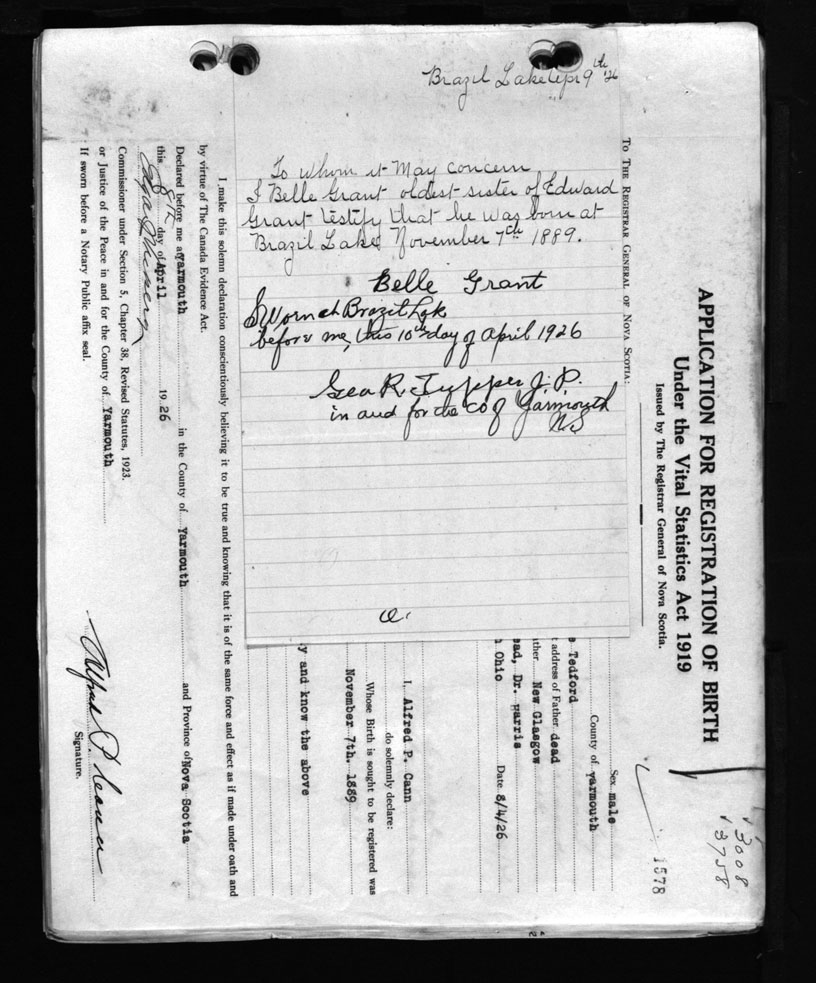 Brazil Lake Apr 9th '26
To whom it May Concern
I Belle Grant oldest sister of Edward
Grant testify that he was born at
Brazil Lake November 7th 1889.
Belle Grant
Sworn at Brazil Lake
before me, this 10th day of April 1926
Geo R. Tupper J. P.
in and for the Co of Yarmouth
N.S
a.
APPLICATION FOR REGISTRATION OF BIRTH
Under the Vital Statistics Act 1919
Issued by The Registrar General of Nova Scotia.
13008
13758
1578
To The Registrar General of Nova Scotia:
Sex male
County of yarmouth
Tedford
address of Father dead
New Glasgow
Dr. Harris
Ohio Date 8/4/26
I, Alfred P. Cann
do solemnly declare:
Whose Birth is sought to be registered was
November 7th. 1889
y and know the above
I make this solemn declaration conscientiously believing it to be true and knowing that it is of the same force and effect as if made under oath and
by virtue of The Canada Evidence Act.
Declared before me at yarmouth in the County of Yarmouth and Province of Nova Scotia
this 8th day of April 1926
Commissioner under Section 5, Chapter 38, Revised Statutes, 1923.
or Justice of the Peace in and for the County of Yarmouth
If sworn before a Notary Public affix seal.
Alfred P. Cann
Signature.